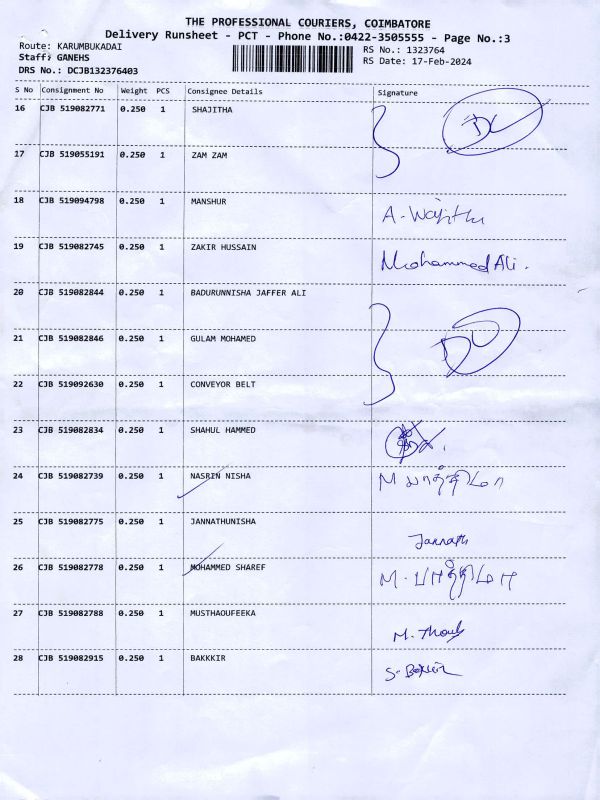 THE PROFESSIONAL COURIERS, COIMBATORE
Delivery Runsheet - PCT - Phone No.:0422-3505555 - Page No.:3
Route: KARUMBUKADAI
Staff: GANEHS
DRS No.: DCJB132376403
RS No.: 1323764
RS Date: 17-Feb-2024
S No Consignment No Weight PCS Consignee Details Signature
16 CJB 519082771 0.250 1 SHAJITHA DL
17 CJB 519055191 0.250 1 ZAM ZAM
18 CJB 519094798 0.250 1 MANSHUR A. Wajitha
19 CJB 519082745 0.250 1 ZAKIR HUSSAIN Mohammed Ali.
20 CJB 519082844 0.250 1 BADURUNNISHA JAFFER ALI
21 CJB 519082846 0.250 1 GULAM MOHAMED DL
22 CJB 519092630 0.250 1 CONVEYOR BELT
23 CJB 519082834 0.250 1 SHAHUL HAMMED
24 CJB 519082739 0.250 1 NASRIN NISHA M
25 CJB 519082775 0.250 1 JANNATHUNISHA Jannath
26 CJB 519082778 0.250 1 MOHAMMED SHAREF M.
27 CJB 519082788 0.250 1 MUSTHAOUFEEKA M.
28 CJB 519082915 0.250 1 BAKKKIR S.